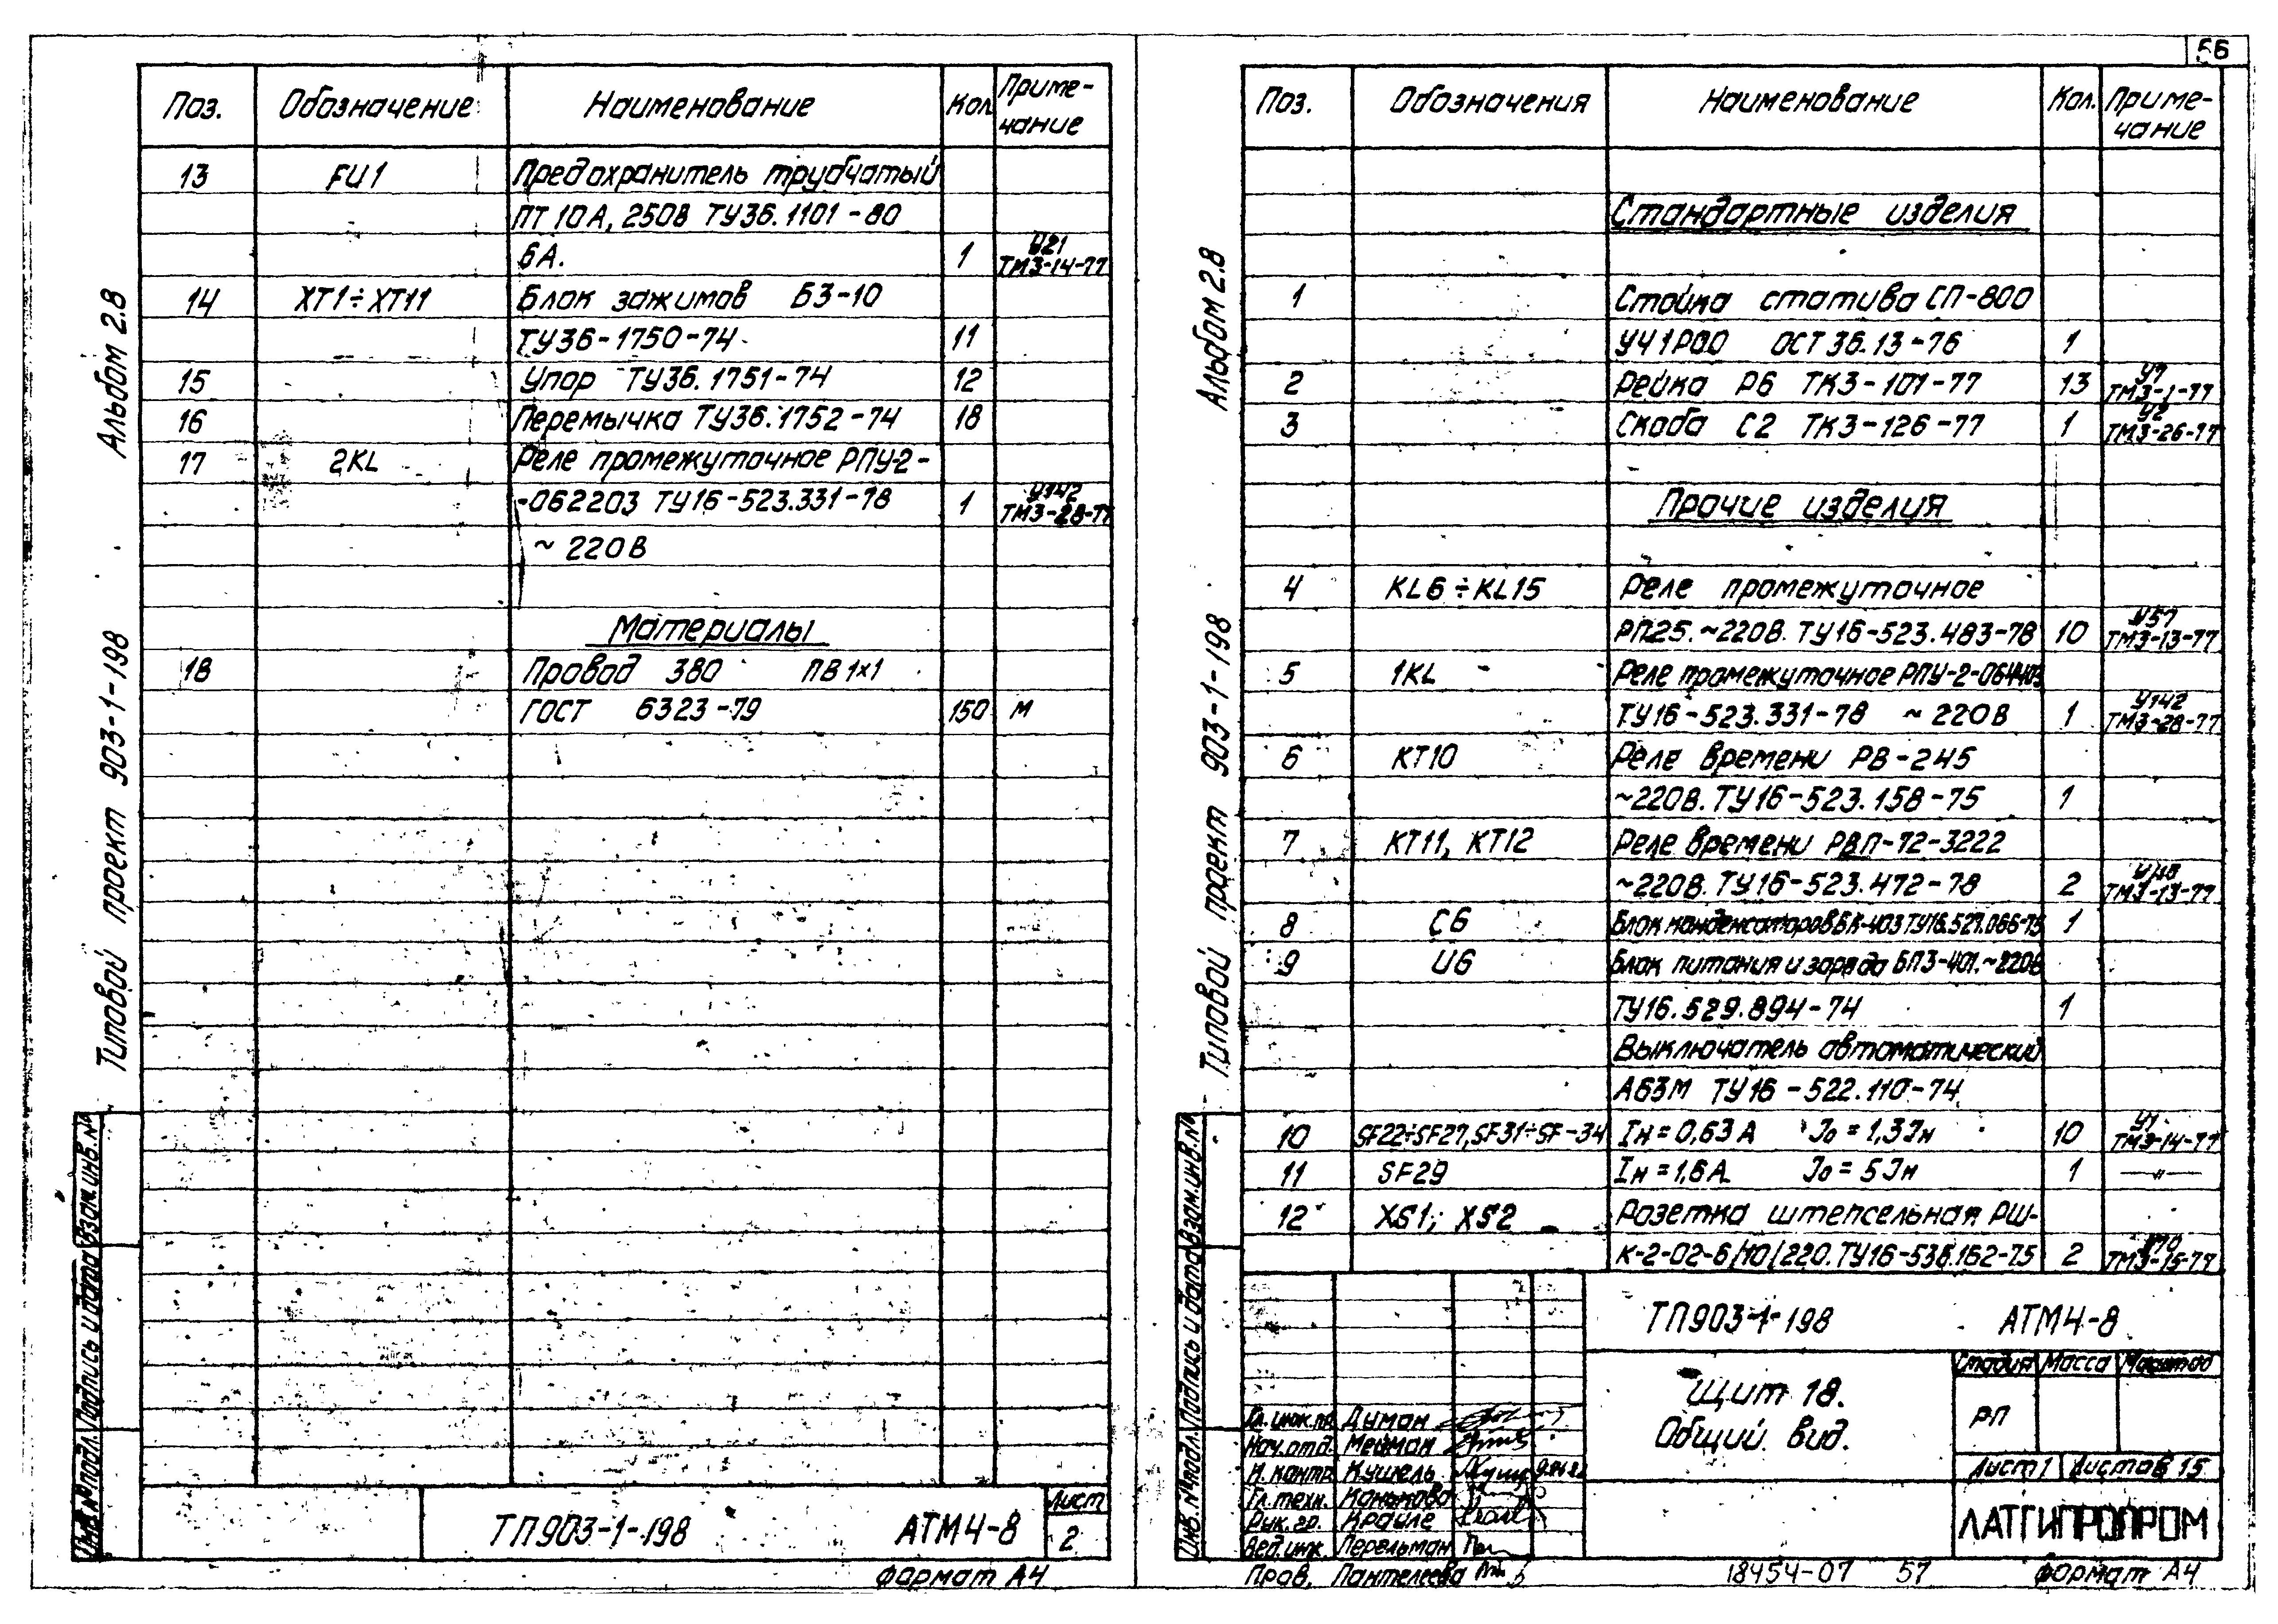 56
Альбом 2.8
Типовой проект 903-1-198
Поз. Обозначение Наименование Кол Приме-
чание
13 FU1 Предохранитель трубчатый
ПТ 10А, 250В ТУ36.1101-80
6А. 1 У21 ТМ3-14-77
14 XT1÷XT11 Блок зажимов БЗ-10
ТУ36-1750-74 11
15 Упор ТУ36.1751-74 12
16 Перемычка ТУ36.1752-74 18
17 2KL Реле промежуточное РПУ-2-
-062203 ТУ16-523.331-78 1 У142 ТМ3-28-77
~ 220В
Материалы
18 Провод 380 ПВ 1х1
ГОСТ 6323-79 150 м
Инв.№подл. Подпись и дата Взам.инв.№
ТП903-1-198 АТМ4-8 Лист
2
Формат А4
Альбом 2.8
Типовой проект 903-1-198
Поз. Обозначения Наименование Кол. Приме-
чание
Стандартные изделия
1 Стойка статива СП-800
УЧ1Р00 ОСТ 36.13-76 1
2 Рейка Р6 ТК3-101-77 13 У7 ТМ3-1-77
3 Скоба С2 ТК3-126-77 1 У2 ТМ3-26-77
Прочие изделия
4 KL6÷KL15 Реле промежуточное
РП25.~220В. ТУ16-523.483-78 10 У57 ТМ3-13-77
5 1KL Реле промежуточное РПУ-2-064403
ТУ16-523.331-78 ~ 220В 1 У142 ТМ3-28-77
6 КТ10 Реле времени РВ-245
~220В. ТУ16-523.158-75 1
7 КТ11, КТ12 Реле времени РВП-72-3222
~220В. ТУ16-523.472-78 2 ТМ3-13-77
8 С6 Блок конденсаторов БК-403 ТУ16.521.066-75 1
9 U6 Блок питания и заряда БПЗ-401.~220В
ТУ16.529.894-74 1
Выключатель автоматический
А63М ТУ16-522.110-74
10 SF22÷SF27, SF31÷SF-34 Iн = 0,63А Jо = 1,3Jн 10 У1 ТМ3-14-77
11 SF29 Iн = 1,6А Jо = 5Jн 1 —"—
12 XS1; XS2 Розетка штепсельная РШ-
к-2-02-6/10/220. ТУ16-538.162-75 2 ТМ3-15-77
Инв.№подл. Подпись и дата Взам.инв.№
ТП903-1-198 АТМ4-8
Щит 18.
Общий вид.
Стадия Масса Масштаб
РП
Лист 1 Листов 15
ЛАТГИПРОПРОМ
Гл.инж.пр. Думан
Нач.отд. Мейман
Н.контр. Кушель
Гл.техн. Конькова
Рук.гр. Крауле
Вед.инж. Перельман
Пров. Пантелеева
18454-07 57 Формат А4